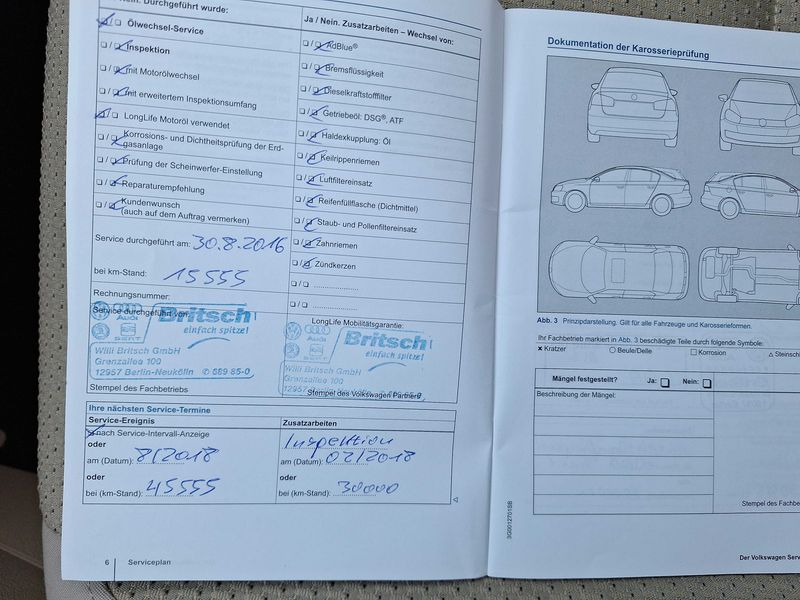 Nein. Durchgeführt wurde:
Ölwechsel-Service
Inspektion
mit Motorölwechsel
mit erweitertem Inspektionsumfang
LongLife Motoröl verwendet
Korrosions- und Dichtheitsprüfung der Erd-
gasanlage
Prüfung der Scheinwerfer-Einstellung
Reparaturempfehlung
Kundenwunsch
(auch auf dem Auftrag vermerken)
Service durchgeführt am: 30.8.2016
bei km-Stand: 15555
Rechnungsnummer:
Service durchgeführt von:
Audi
SEAT
Britsch
einfach spitze!
Willi Britsch GmbH
Grenzallee 100
12057 Berlin-Neukölln ✆ 689 85-0
Stempel des Fachbetriebs
Ja / Nein. Zusatzarbeiten – Wechsel von:
AdBlue®
Bremsflüssigkeit
Dieselkraftstofffilter
Getriebeöl: DSG®, ATF
Haldexkupplung: Öl
Keilrippenriemen
Luftfiltereinsatz
Reifenfüllflasche (Dichtmittel)
Staub- und Pollenfiltereinsatz
Zahnriemen
Zündkerzen
LongLife Mobilitätsgarantie:
Audi
SEAT
Britsch
einfach spitze!
Willi Britsch GmbH
Grenzallee 100
Stempel des Volkswagen Partners
Ihre nächsten Service-Termine
Service-Ereignis
nach Service-Intervall-Anzeige
oder
am (Datum): 8/2018
oder
bei (km-Stand): 45555
Zusatzarbeiten
Inspektion
am (Datum): 02/2018
oder
bei (km-Stand): 30000
6 Serviceplan
Dokumentation der Karosserieprüfung
Abb. 3 Prinzipdarstellung. Gilt für alle Fahrzeuge und Karosserieformen.
Ihr Fachbetrieb markiert in Abb. 3 beschädigte Teile durch folgende Symbole:
Kratzer Beule/Delle Korrosion Steinsch
Mängel festgestellt? Ja: Nein:
Beschreibung der Mängel:
Stempel des Fachbe
3G0012701SB
Der Volkswagen Serv